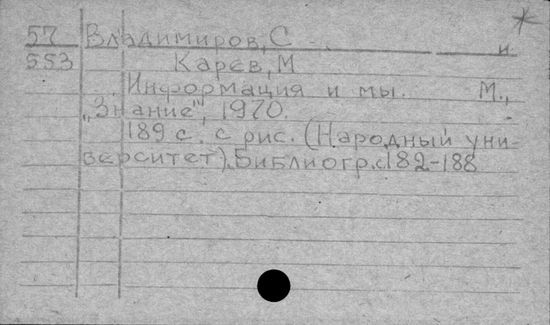 57 Владимиров, С. и
553 Карев, М
Информация и мы. М.,
„Знание", 1970.
189 с. с рис. (Народный уни-
верситет). Библиогр.с182-188